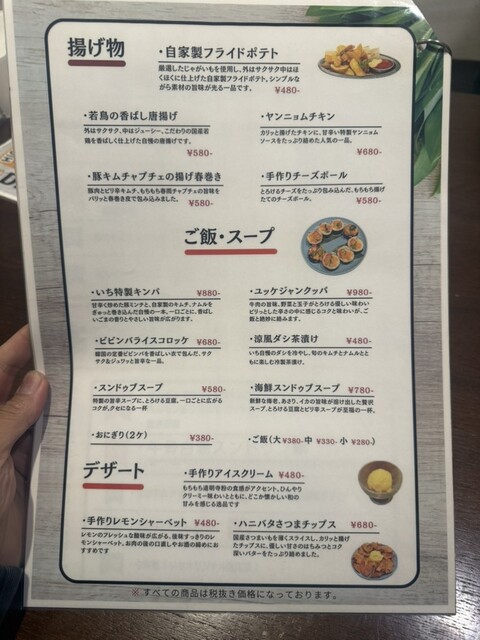 揚げ物
・自家製フライドポテト
厳選したじゃがいもを使用し、外はサクサク中はほ
くほくに仕上げた自家製フライドポテト。シンプルな
がら素材の旨味が光る一品です。 ¥480-
・若鳥の香ばし唐揚げ
外はサクサク、中はジューシー。こだわりの国産若
鶏を香ばしく仕上げた自慢の唐揚げです。
¥580-
・ヤンニョムチキン
カリッと揚げたチキンに、甘辛い特製ヤンニョム
ソースをたっぷり絡めた人気の一品。
¥680-
・豚キムチャプチェの揚げ春巻き
豚肉とピリ辛キムチ、もちもち春雨チャプチェの旨味を
パリッと春巻き皮で包み込みました。 ¥580-
・手作りチーズボール
とろけるチーズをたっぷり包み込んだ、もちもち揚げ
たてのチーズボール。 ¥580-
ご飯・スープ
・いち特製キンパ ¥880-
甘辛く炒めた豚ミンチと、自家製のキムチ、ナムルを
ぎゅっと巻き込んだ自慢の一本。一口ごとに、香ばし
いごまの香りとやさしい旨味が広がります。
・ユッケジャンクッパ ¥980-
牛肉の旨味、野菜と玉子がとろける優しい味わい
ピリッとした辛さの中に感じるコクと味わいが、ご
飯と絶妙に絡みます。
・ビビンバライスコロッケ ¥680-
韓国の定番ビビンバを香ばしい衣で包んだ、サク
サク&ジュワッと旨辛な一品。
・涼風ダシ茶漬け ¥480-
いち自慢のダシを冷やし、旬のキムチとナムルとと
もに楽しむ冷製茶漬け。
・スンドゥブスープ ¥580-
特製の旨辛スープに、とろける豆腐。一口ごとに広がる
コクが、クセになる一杯
・海鮮スンドゥブスープ ¥780-
新鮮な海老、あさり、イカの旨味が溶け出した贅沢
スープ、とろける豆腐とピリ辛スープが至福の一杯。
・おにぎり(2ケ) ¥380-
・ご飯(大¥380-中 ¥330-小 ¥280-)
デザート
・手作りアイスクリーム ¥480-
もちもち道明寺粉の食感がアクセント。ひんやり
クリーミー味わいとともに、どこか懐かしい和の
甘みを感じる逸品です
・手作りレモンシャーベット ¥480-
レモンのフレッシュな酸味が広がる、後味すっきりのレ
モンシャーベット。お肉の後の口直しやお酒の締めにお
すすめです
・ハニバタさつまチップス ¥680-
国産さつまいもを薄くスライスし、カリッと揚げ
たチップスに、優しい甘さのはちみつとコク
深いバターをたっぷり絡めました。
※ すべての商品は税抜き価格になっております。